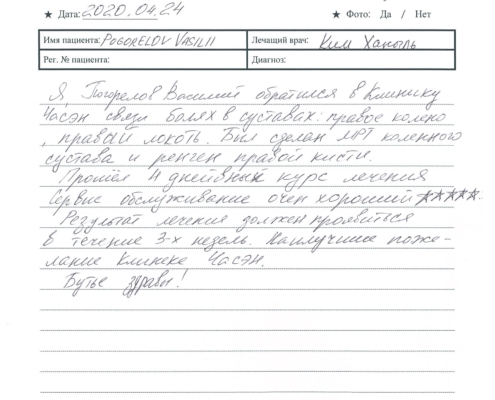 ★ Дата: 2020.04.24 ★ Фото: Да / Нет
Имя пациента: POGORELOV VASILII Лечащий врач: Ким Ханыль
Рег. № пациента: Диагноз:
Я, Погорелов Василий обратился в Клинику
Часэн связи болях в суставах: правое колено
, правай локоть. Был сделан МРТ коленного
сустава и ренген правой кисти.
Прошёл 4 дневный курс лечения
Сервис обслуживание очен хороший ★★★★★.
Результат лечения должен проявиться
в течение 3-х недель. Наилучшие поже-
лание Клинеке Часэн.
Бутье здравы!